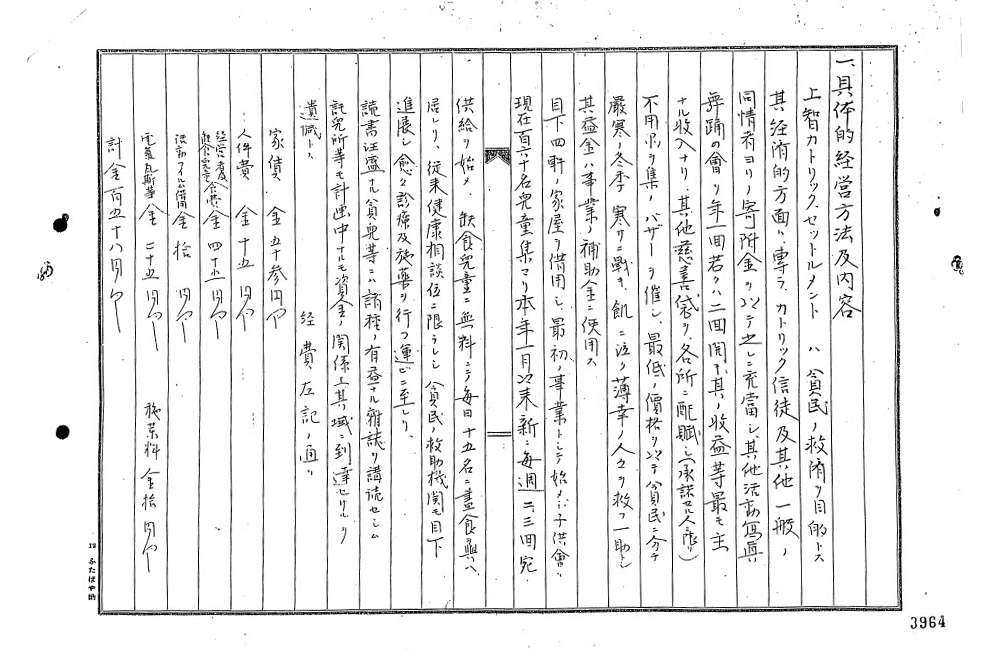 一、具体的経営方法及内容
上智カトリック、セットルメント ハ 貧民ノ救済ヲ目的トス
其経済的方面ハ専ラ、カトリック信徒及其他一般ノ
同情者ヨリノ寄附金ヲ以テ之レニ充当シ、其他活動写真
舞踊の會ヲ年一回若クハ二回開キ其ノ収益等最モ主
ナル収入ナリ、其他慈善袋ヲ各所ニ配賦シ(承諾セル人ニ限リ)
不用品ヲ集メ、バザーヲ催シ、最低ノ價格ヲ以テ貧民ニ分チ
嚴寒ノ冬季 寒サニ戰キ、飢ニ泣ク薄幸ノ人々ヲ救フ一助トシ
其益金ハ事業ノ補助金ニ使用ス
目下四軒ノ家屋ヲ借用シ、最初ノ事業トシテ始メシハ子供會ニ
現在百六十名児童集マリ本年一月以来新ニ毎週二、三回宛
供給ヲ始メ、缺食児童ニ無料ニテ毎日十五名ニ晝食ヲ與ヘ
居レリ、従来健康相談位ニ限ラレシ 貧民救助機関モ目下
進展シ愈々診療及施薬ヲ行フ運ビニ至レリ、
読書旺盛ナル貧児等ニハ諸種ノ有益ナル雜誌ヲ購読セシム
託児所等モ計画中ナルモ資金ノ関係上其ノ域ニ到達セザルヲ
遺憾トス 経費左記ノ通リ
家賃 金五十参円也
人件費 金十五円也
経営者及缺食児童食費 金四十五円也
活動フイルム借 金拾円也
電気瓦斯等 金二十五円也 施薬料金拾円也
計金百五十八円也
12 ふたばや納
3964